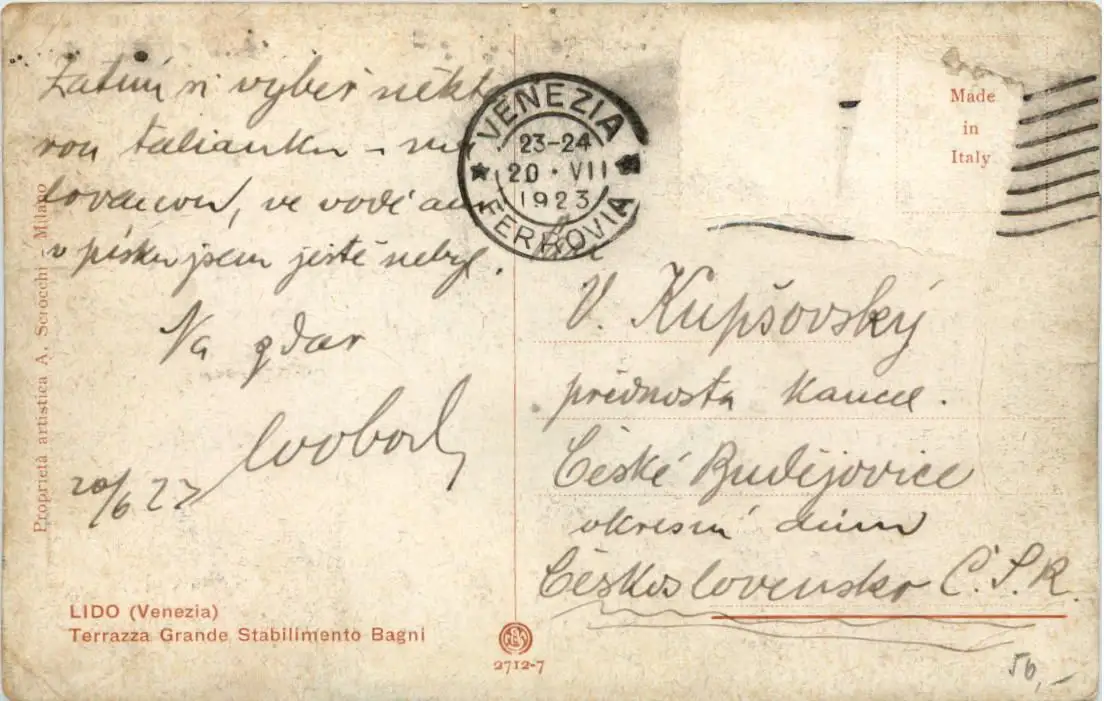 Zatím si vyber někte
rou talianku – ma
lovanou, ve vodě ani
v písku jsem ještě nebyl.
Na zdar
20/6 23
Proprietà artistica A. Scrocchi - Milano
LIDO (Venezia)
Terrazza Grande Stabilimento Bagni
2712-7
VENEZIA
23-24
20 · VII
1923
FERROVIA
Made
in
Italy
V. Kupšovský
přednosta kancel.
České Budějovice
okresní dům
Československo Č.S.R.
50,-